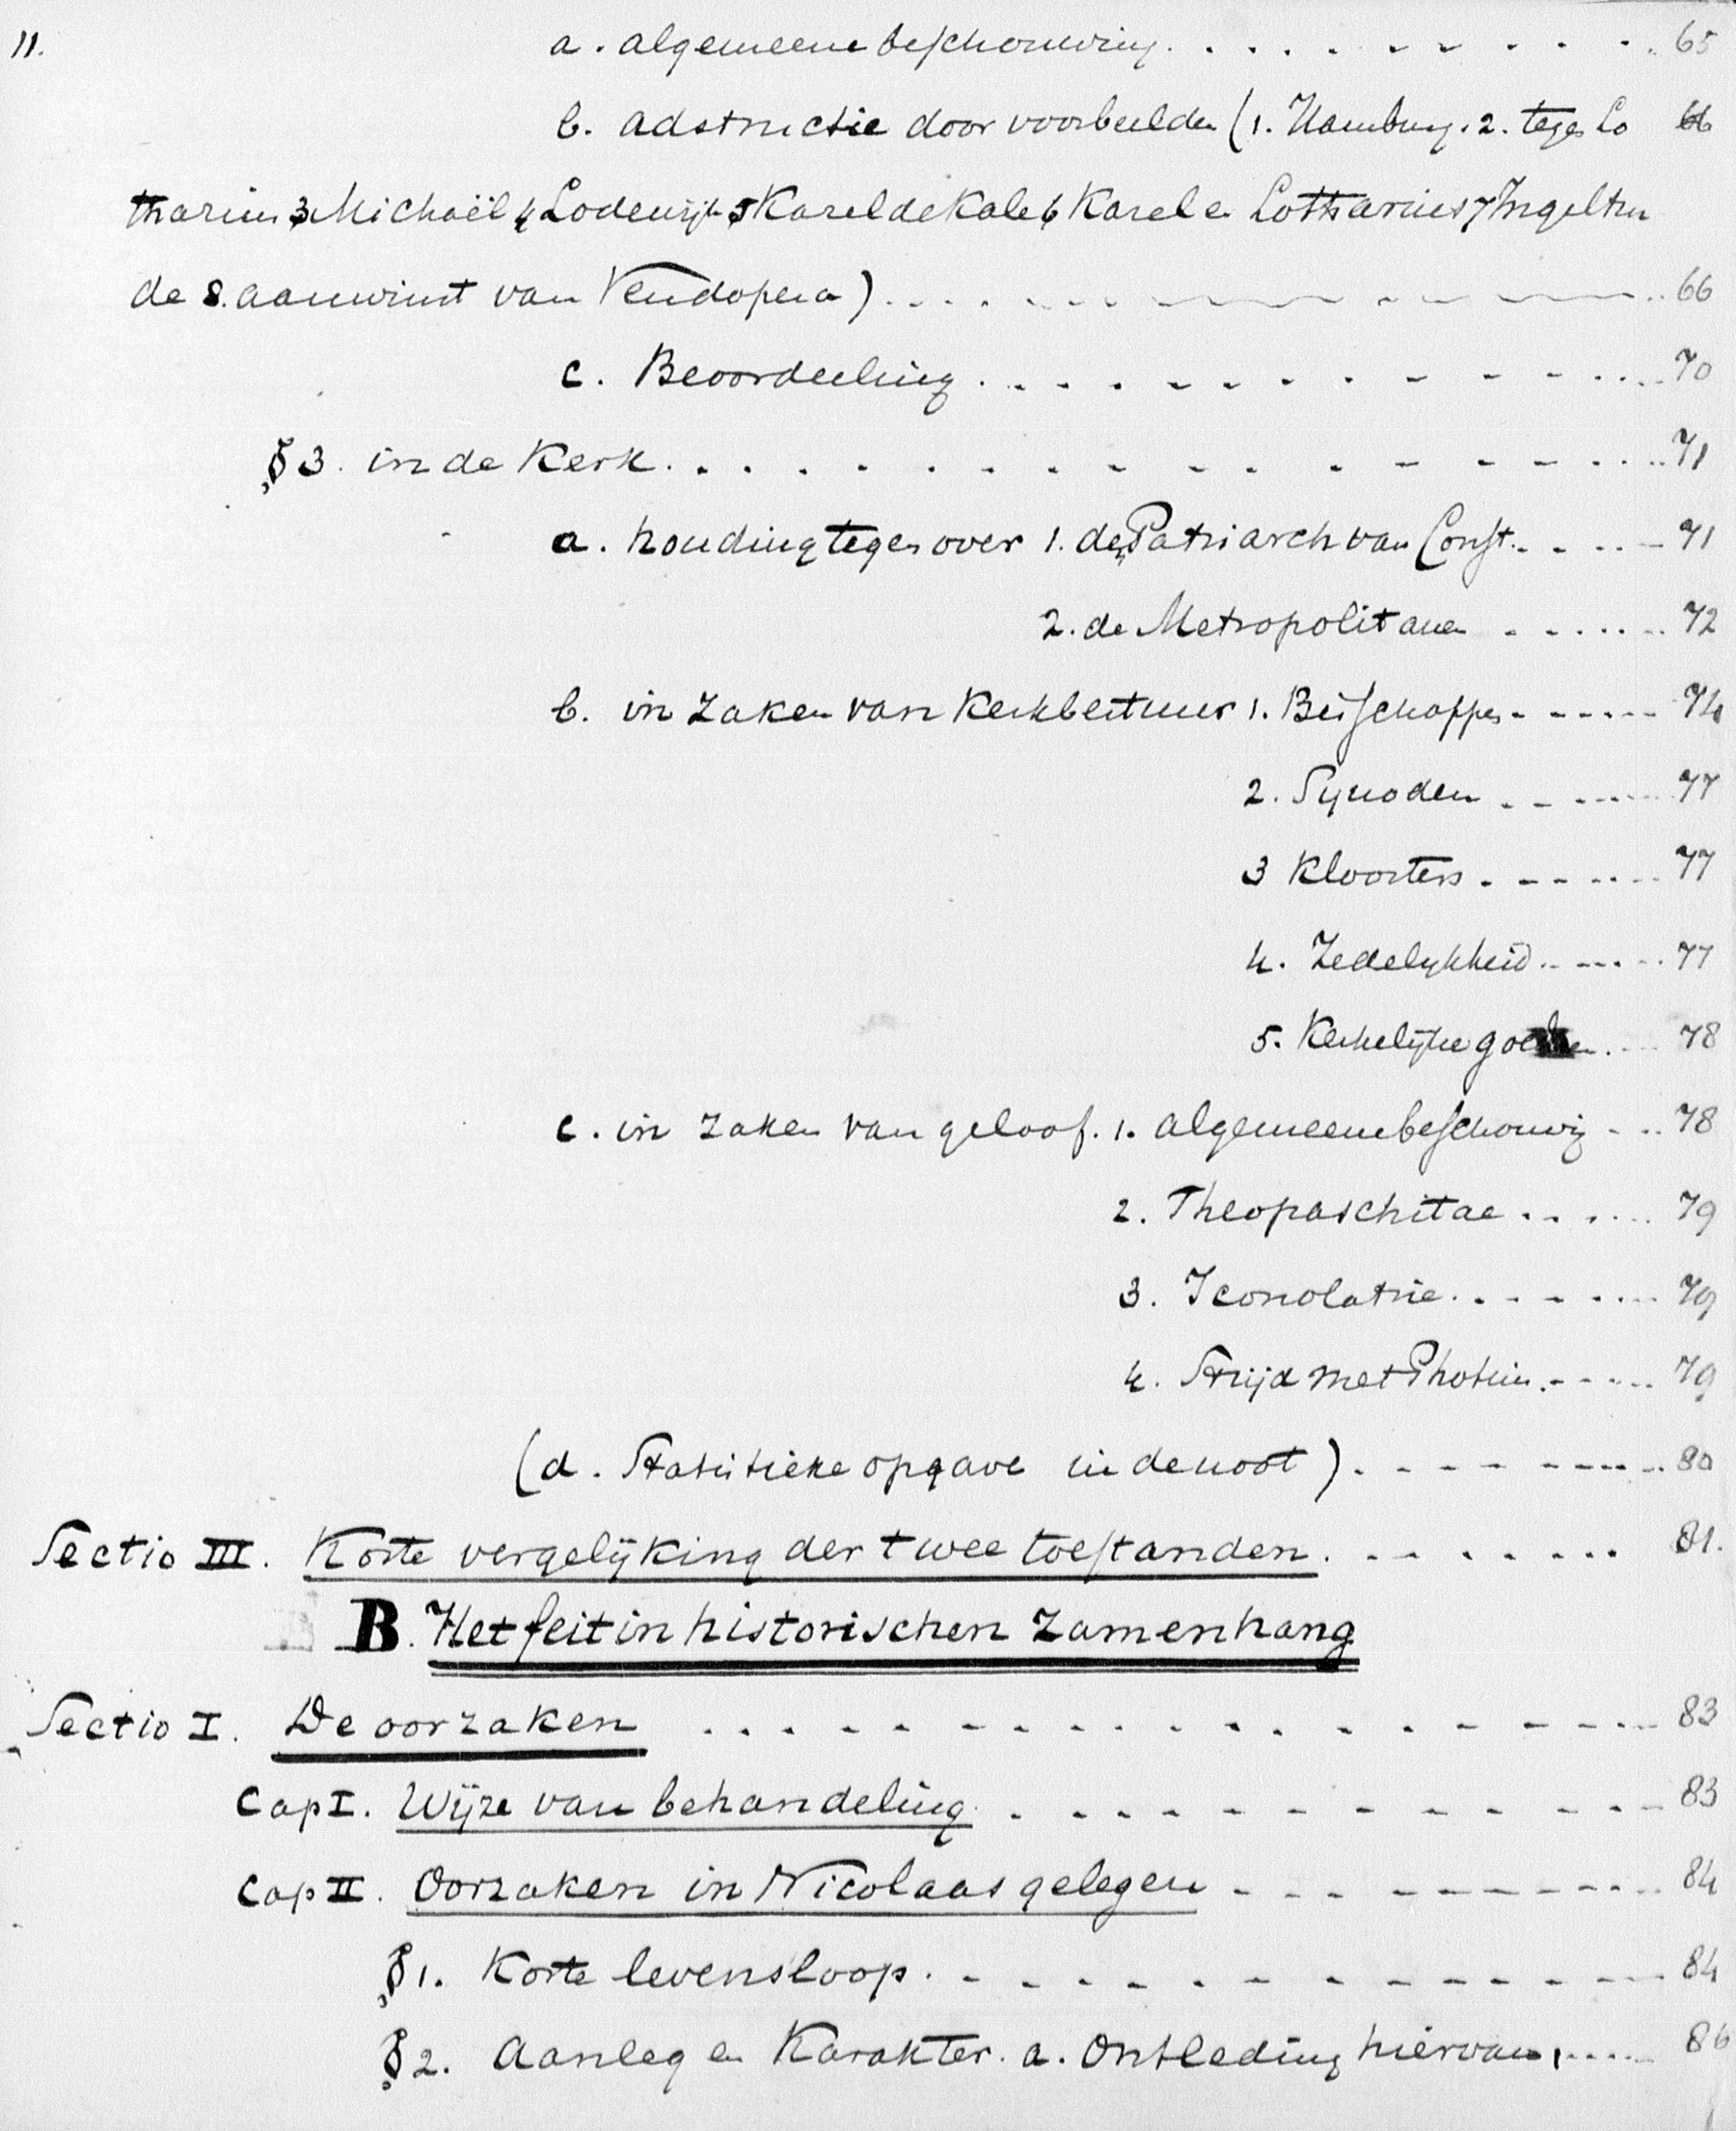 11. a. algemeene beschouwing. . . . . . . . . . 65
b. adstructie door voorbeelden (1. Hamburg. 2. tegen Lo 66
tharius 3 Michaël 4 Lodewijk 5 Karel de Kale 6 Karel en Lotharius 7 Ingeltru
de 8. aanwinst van Vendopera) . . . . . . . . . . 66
c. Beoordeeling . . . . . . . . . . 70
§ 3. in de Kerk . . . . . . . . . . 71
a. houding tegenover 1. den Patriarch van Const. . . . . 71
2. de Metropolitanen . . . . . . 72
b. in zaken van Kerkbestuur 1. Bisschoppen . . . . . . 74
2. Synoden . . . . . . 77
3 Kloosters . . . . . . 77
4. Zedelykheid . . . . . . 77
5. Kerkelijke goederen . . . . 78
c. in zaken van geloof. 1. algemeene beschouwing . . . 78
2. Theopaschitae . . . . . . 79
3. Iconolatrie . . . . . . 79
4. Strijd met Photius . . . . . 79
(d. Statistieke opgave in de noot) . . . . . . . . 80
Sectio III. Korte vergelijking der twee toestanden . . . . . . . . 81.
B. Het feit in historischen zamenhang
Sectio I. De oorzaken . . . . . . . . . . 83
Cap I. Wijze van behandeling . . . . . . . . . . 83
Cap II. Oorzaken in Nicolaas gelegen . . . . . . . . . . 84
§ 1. Korte levensloop . . . . . . . . . . 84
§ 2. Aanleg en Karakter. a. Ontleding hiervan, . . . . . 86